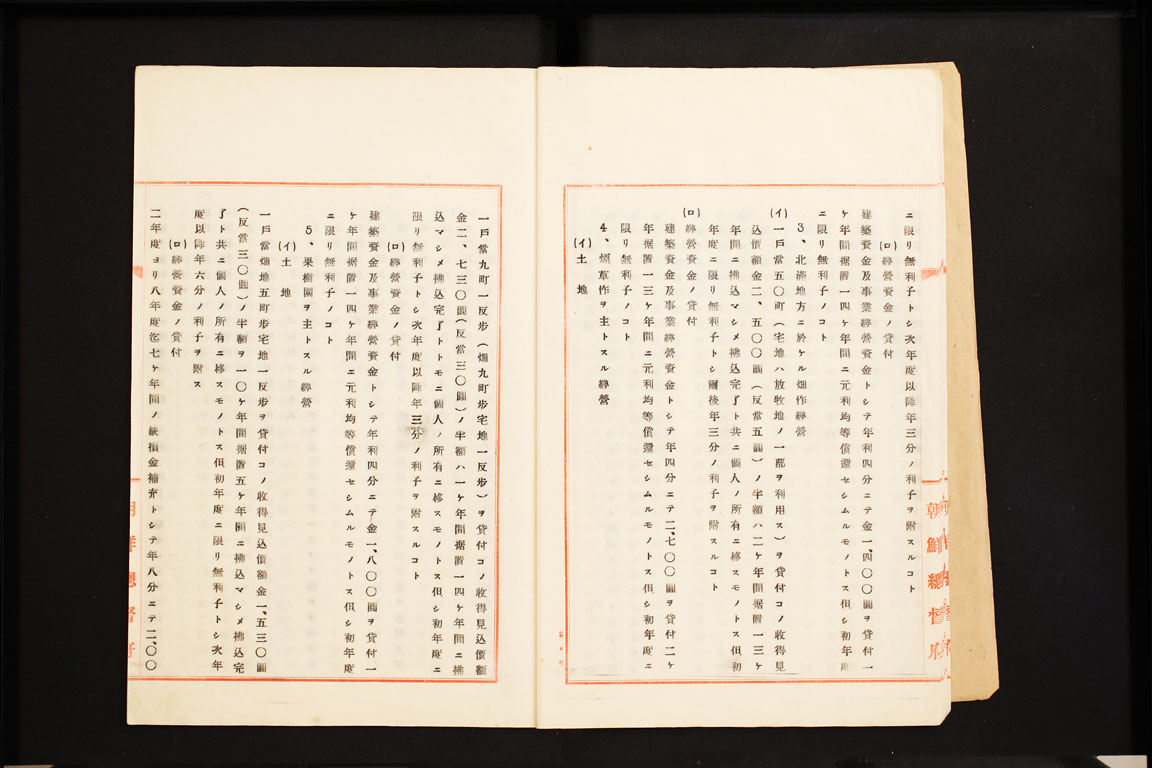 ニ限リ無利子トシ次年度以降年三分ノ利子ヲ附スルコト
(ロ)經營資金ノ貸付
建築資金及事業經營資金トシテ年利四分ニテ金一、四〇〇圓ヲ貸付一
ケ年間据置一四ケ年間ニ元利均等償還セシムルモノトス但シ初年度
ニ限リ無利子ノコト
3、北滿地方ニ於ケル畑作經營
(イ)一戶當五〇町(宅地ハ放牧地ノ一部ヲ利用ス)ヲ貸付コノ收得見
込價額金二、五〇〇圓(反當五圓)ノ半額ハ二ケ年間据置一三ケ
年間ニ拂込マシメ拂込完了ト共ニ個人ノ所有ニ移スモノトス但初
年度ニ限リ無利子トシ爾後年三分ノ利子ヲ附スルコト
(ロ)經營資金ノ貸付
建築資金及事業經營資金トシテ年四分ニテ二、七〇〇圓ヲ貸付二ケ
年据置一三ケ年間ニ元利均等償還セシムルモノトス但シ初年度ニ
限リ無利子ノコト
4、煙草作ヲ主トスル經營
(イ)土地
一戶當九町一反步(畑九町步宅地一反步)ヲ貸付コノ收得見込價額
金二、七三〇圓(反當三〇圓)ノ半額ハ一ケ年間据置一四ケ年間ニ拂
込マシメ拂込完了トトモニ個人ノ所有ニ移スモノトス但シ初年度ニ
限リ無利子トシ次年度以降年三分ノ利子ヲ附スルコト
(ロ)經營資金ノ貸付
建築資金及事業經營資金トシテ年利四分ニテ金一、八〇〇圓ヲ貸付一
ケ年間据置一四ケ年間ニ元利均等償還セシムルモノトス但シ初年度
ニ限リ無利子ノコト
5、果樹園ヲ主トスル經營
(イ)土地
一戶當畑地五町步宅地一反步ヲ貸付コノ收得見込價額金一、五三〇圓
(反當三〇圓)ノ半額ヲ一〇ケ年間据置五ケ年間ニ拂込マシメ拂込完
了ト共ニ個人ノ所有ニ移スモノトス但初年度ニ限リ無利子トシ次年
度以降年六分ノ利子ヲ附ス
(ロ)經營資金ノ貸付
二年度ヨリ八年度迄七ケ年間ノ缺損金補充トシテ年八分ニテ二、〇〇
朝鮮總督府